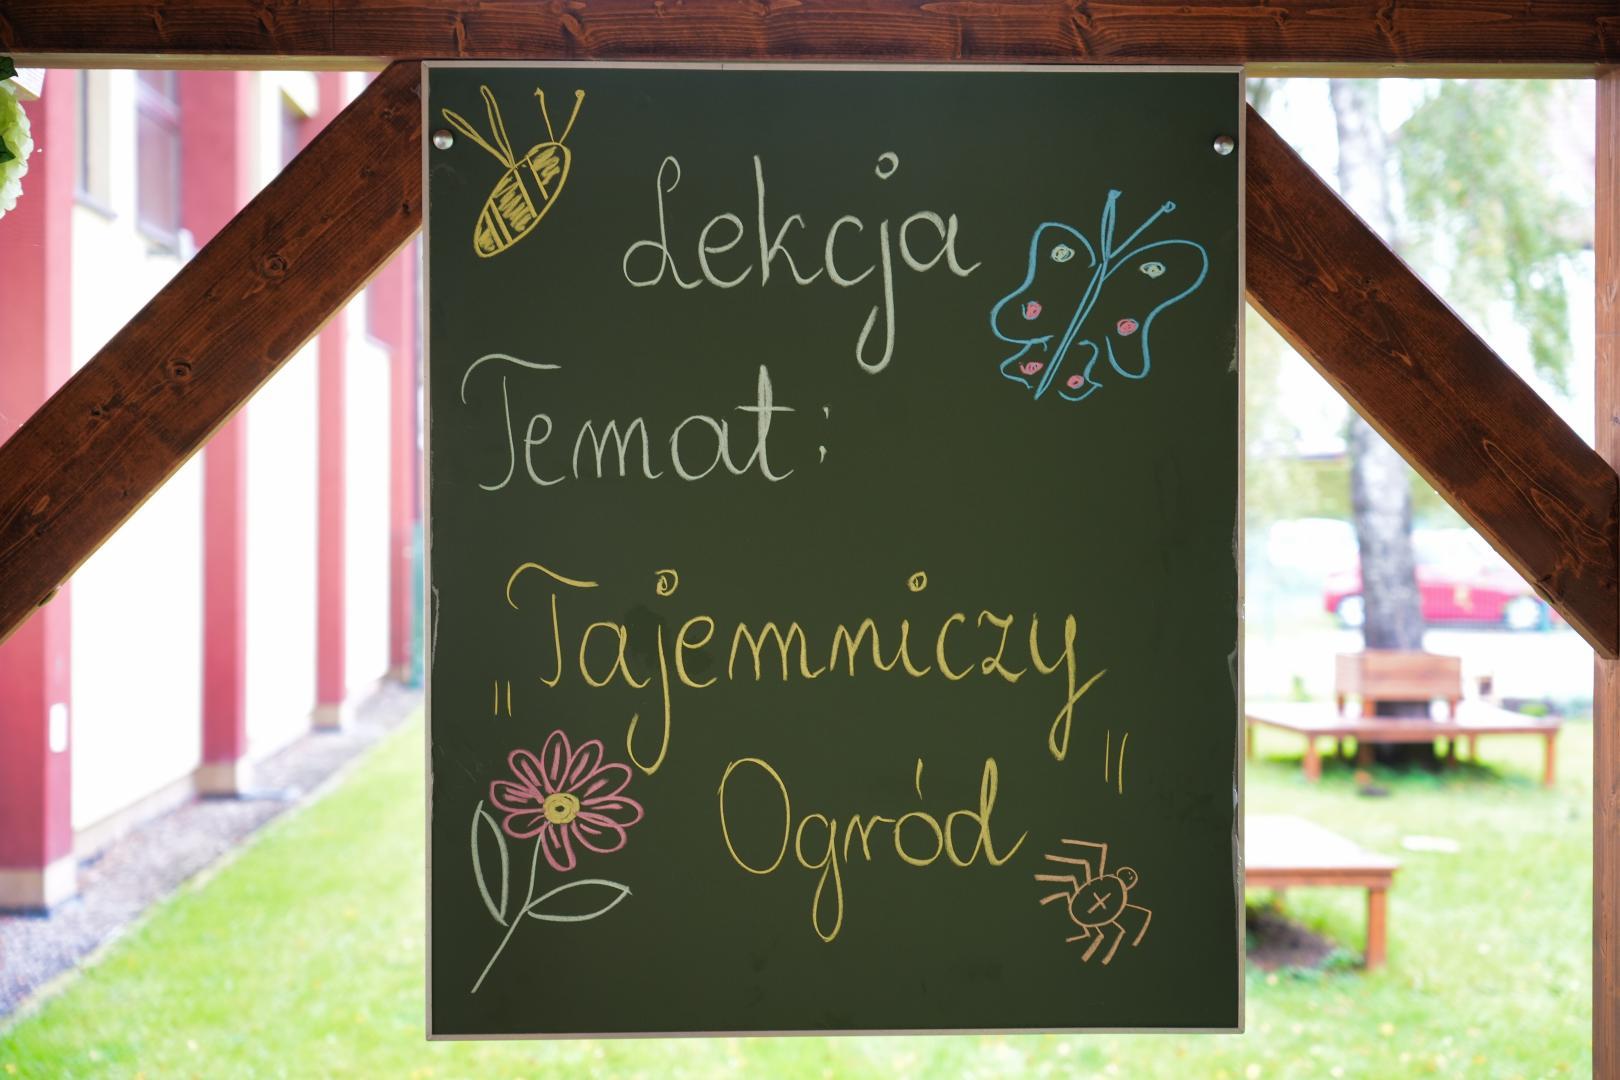 Lekcja
Temat:
„Tajemniczy
Ogród”